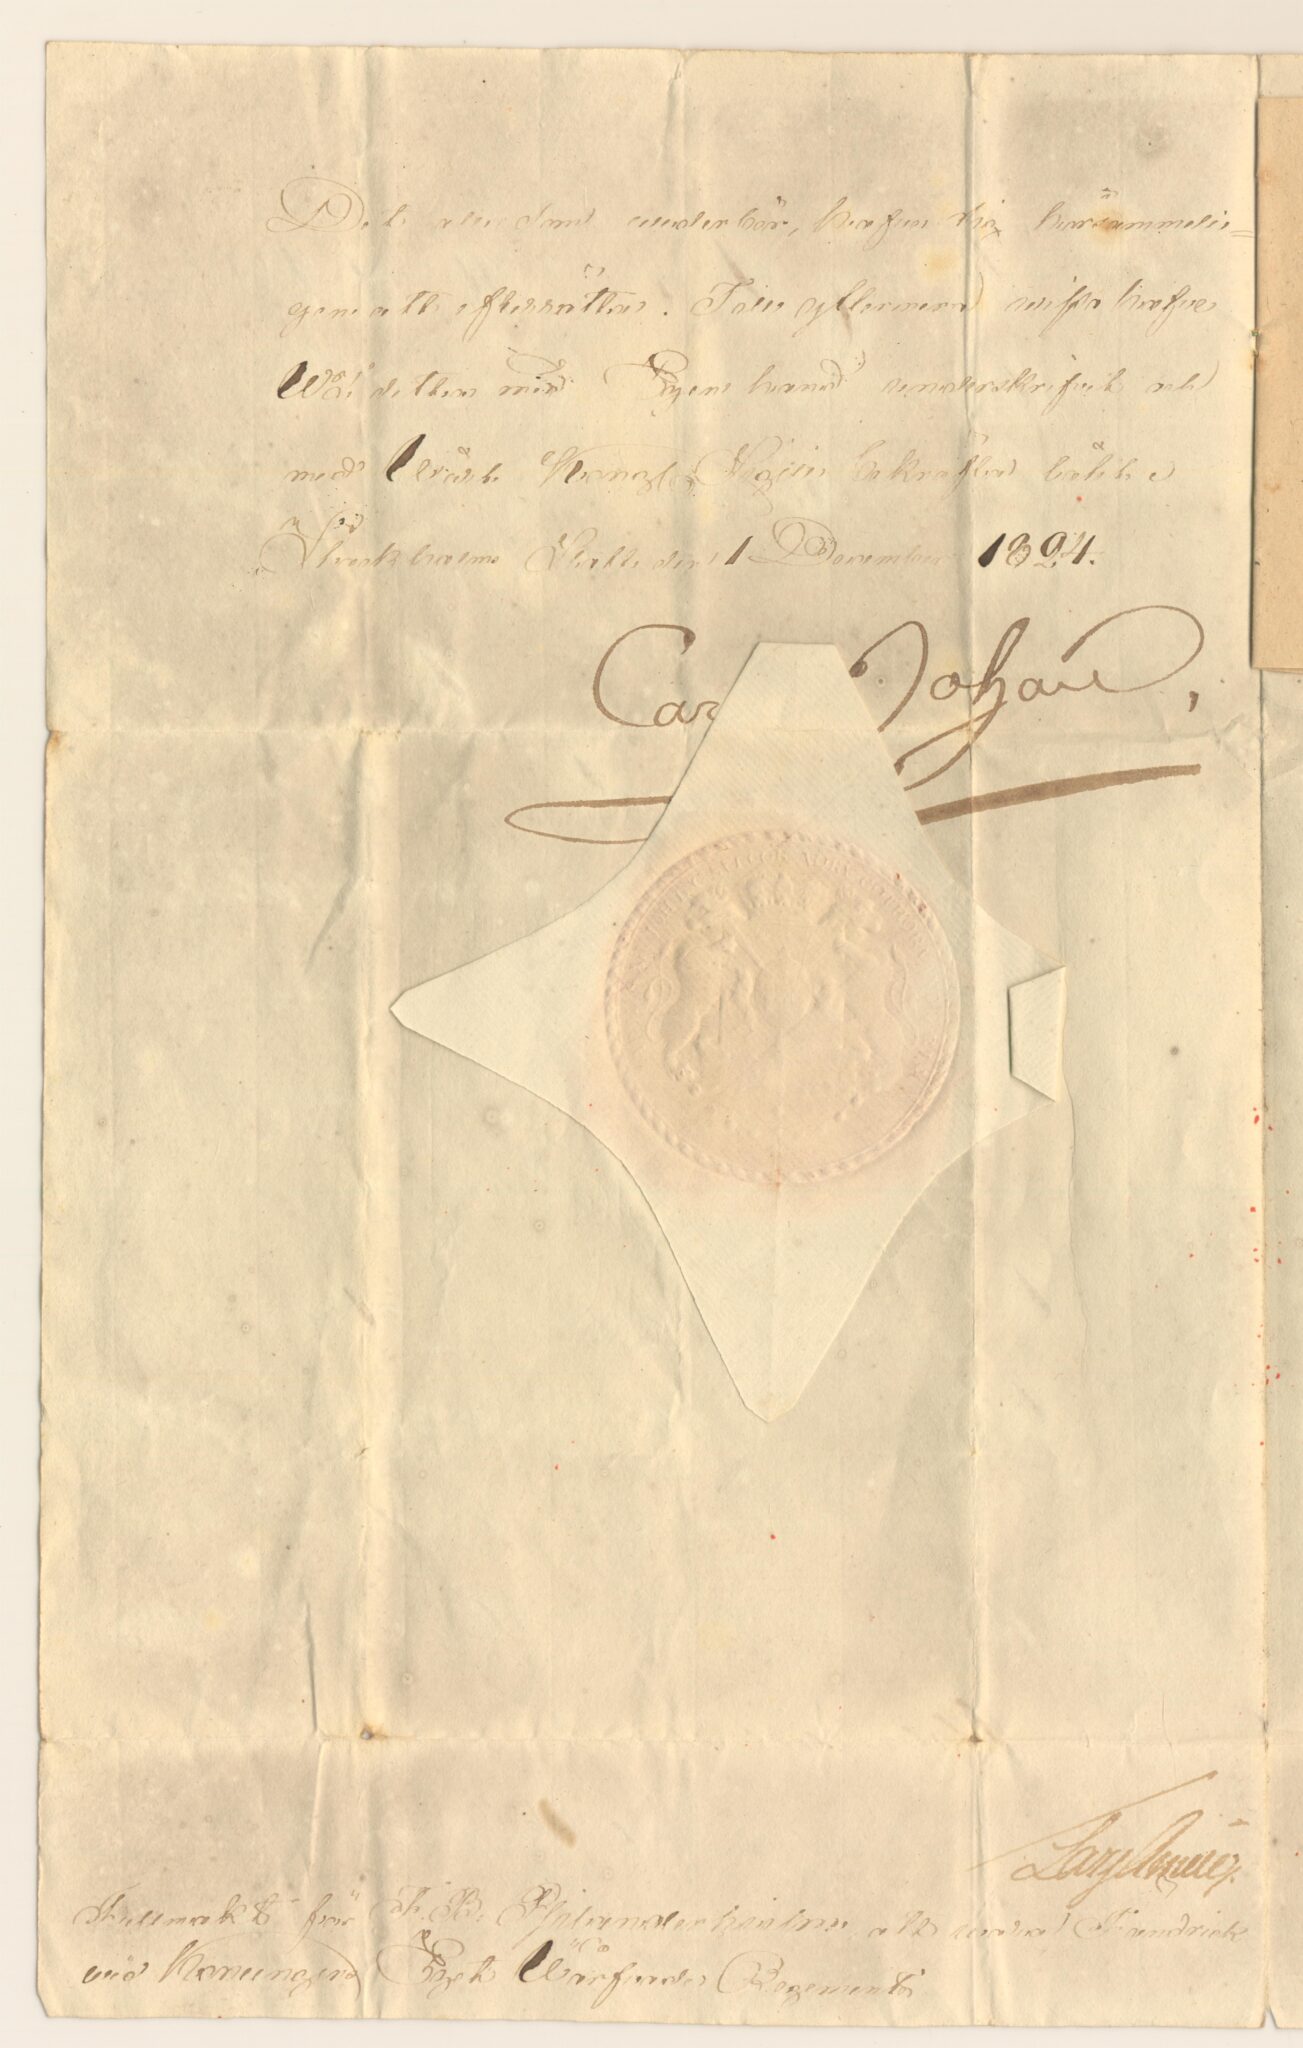 Det alle som wederbör, hafwa sig hörsammeli=
gen att efterrätta. Til yttermera wisso hafwa
Wi detta med Egen hand underskrifwit och
med Wårt Kongl. Sigill bekräfta låtit
Stockholms Slott den 1 December 1824.
Carl Johan
Fullmakt för F. B. Philanderhielm att wara Fändrick
wid Konungens Eget Wärfwade Regemente